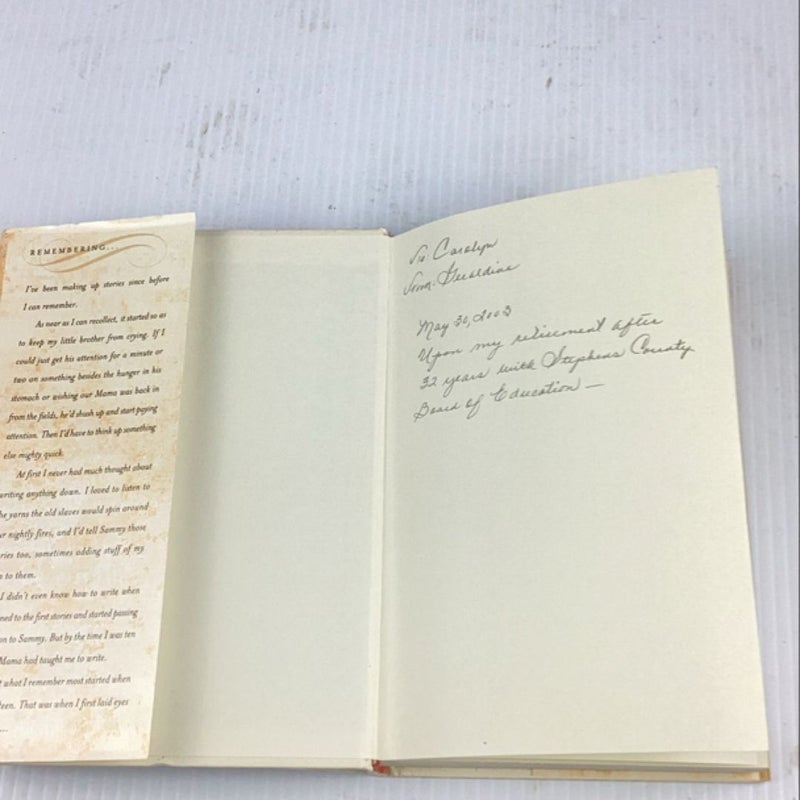 REMEMBERING...
I've been making up stories since before
I can remember.
As near as I can recollect, it started so as
to keep my little brother from crying. If I
could just get his attention for a minute or
two on something besides the hunger in his
stomach or wishing our Mama was back in
from the fields, he'd shush up and start paying
attention. Then I'd have to think up something
else mighty quick.
At first I never had much thought about
writing anything down. I loved to listen to
he yarns the old slaves would spin around
ur nightly fires, and I'd tell Sammy those
ries too, sometimes adding stuff of my
n to them.
I didn't even know how to write when
ned to the first stories and started passing
on to Sammy. But by the time I was ten
Mama had taught me to write.
t what I remember most started when
teen. That was when I first laid eyes
...
To: Carolyn
From: Geraldine
May 30, 2003
Upon my retirement after
32 years with Stephens County
Board of Education —